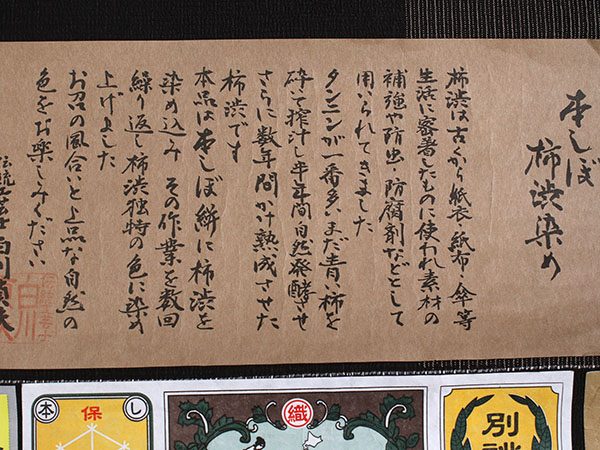 本しぼ
柿渋染め
柿渋は古くから紙衣・紙布・傘等
生活に密着したものに使われ素材の
補強や防虫・防腐剤などとして
用いられてきました
タンニンが一番多いまだ青い柿を
砕いて搾汁し半年間自然発酵させ
さらに数年間かけ熟成させた
柿渋です
本品は本しぼ絣に柿渋を
染め込み その作業を数回
繰り返し柿渋独特の色に染め
上げました
お召の風合いと上品な自然の
色をお楽しみください
伝統工芸士 白川
本
保
し
織
別